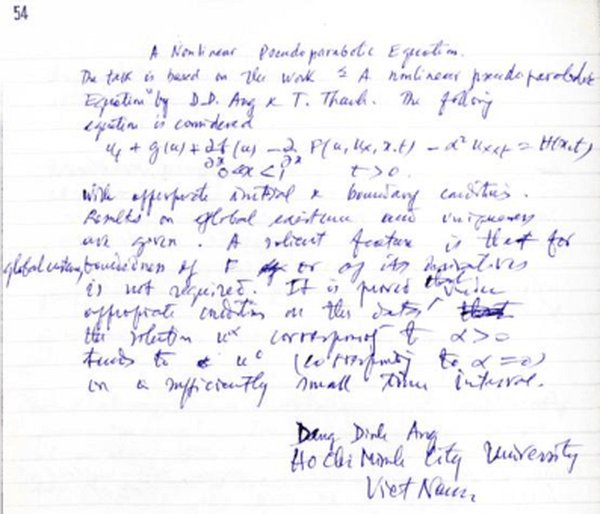 54
A Nonlinear Pseudoparabolic Equation.
The talk is based on the work "A nonlinear pseudoparabolic
Equation" by D.D. Ang & T. Thanh. The following
equation is considered
u_t + g(u) + ∂/∂x f(u) − ∂/∂x F(u, u_x, x, t) − α² u_xxt = H(x,t)
0 < x < 1, t > 0.
with appropriate initial & boundary conditions.
Results on global existence and uniqueness
are given. A salient feature is that for
global existence, boundedness of F or of its derivatives
is not required. It is proved that under
appropriate conditions on the data,
the solution u^α corresponding to α > 0
tends to u^0 (corresponding to α = 0)
on a sufficiently small time interval.
Dang Dinh Ang
Ho Chi Minh City University
Viet Nam